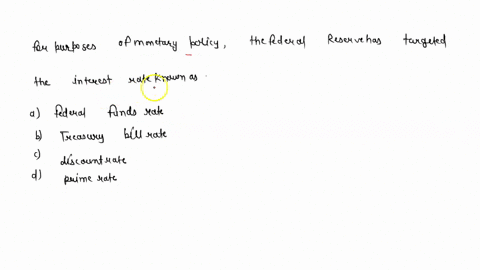 for purposes of monetary policy, the federal Reserve has targeted
the interest rate known as
a) federal funds rate
b) Treasury bill rate
c) discount rate
d) prime rate